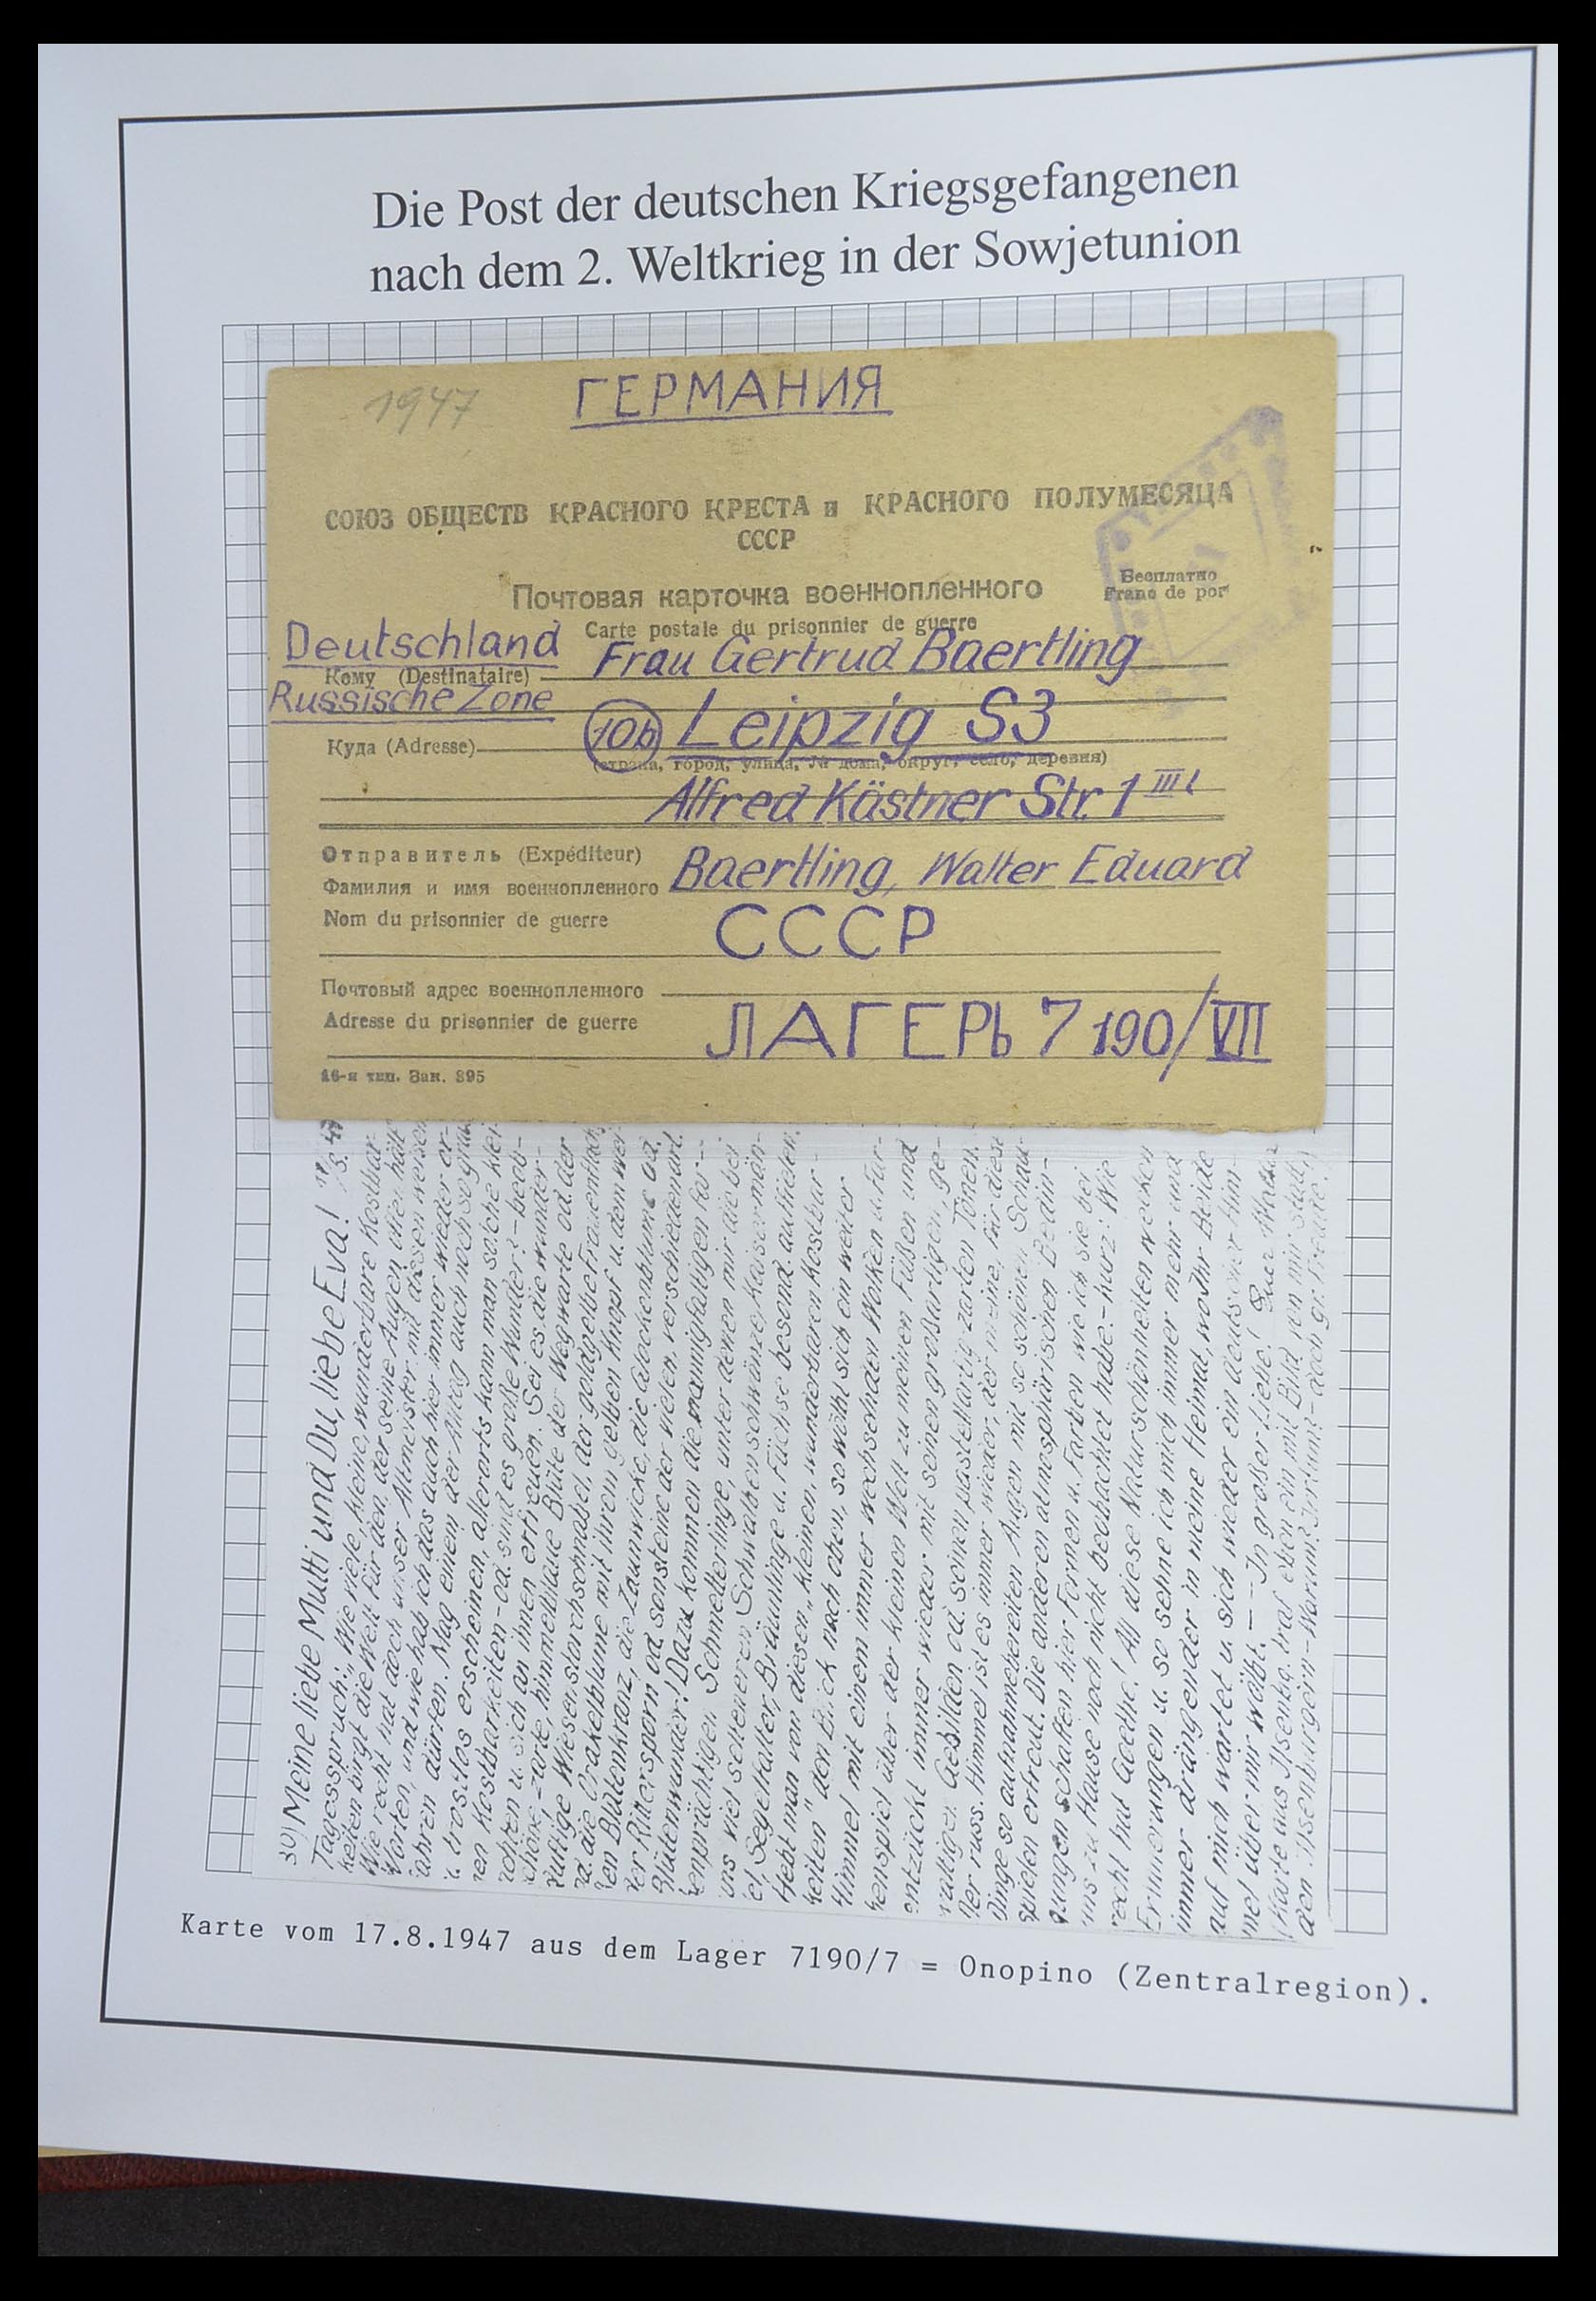 Die Post der deutschen Kriegsgefangenen
nach dem 2. Weltkrieg in der Sowjetunion
1947
ГЕРМАНИЯ
СОЮЗ ОБЩЕСТВ КРАСНОГО КРЕСТА и КРАСНОГО ПОЛУМЕСЯЦА
СССР
Почтовая карточка военнопленного
Бесплатно
Franc de por
Carte postale du prisonnier de guerre
Deutschland
Кому (Destinataire)
Frau Gertrud Baertling
Russische Zone
10b Leipzig S3
Куда (Adresse)
(страна, город, улица, № дома, округ, село, деревня)
Alfred Kästner Str. 1 III l
Отправитель (Expéditeur)
Фамилия и имя военнопленного
Baertling, Walter Eduard
Nom du prisonnier de guerre
СССР
Почтовый адрес военнопленного
Adresse du prisonnier de guerre
ЛАГЕРЬ 7190/VII
16-я тип. Зак. 895
39) Meine liebe Mutti und Du, liebe Eva!
Tagesspruch: „Wie viele, kleine, wunderbare Kostbar-
keiten birgt die Welt für den, der seine Augen offen hält
Wie recht hat doch unser Altmeister mit diesen weisen
Worten, und wie hab ich das auch hier immer wieder er-
fahren dürfen. Mag einem der Alltag auch noch so grau
u. trostlos erscheinen, allerorts kann man solche klei-
nen Kostbarkeiten - od. sind es große Wunder? - beob-
achten u. sich an ihnen erfreuen. Sei es die wunder-
schöne, zarte, himmelblaue Blüte der Wegwarte od. der
duftige Wiesenstorchschnabel, der goldgelbe Frauenflachs
od. die Orakelblume mit ihrem gelben Knopf u. dem wei-
ßen Blütenkranz, die Zaunwicke, die Glockenblume od.
der Rittersporn od. sonst eine der vielen, verschiedenart.
Blütenwunder! Dazu kommen die mannigfaltigen far-
benprächtigen Schmetterlinge, unter denen mir die bei
uns viel selteneren Schwalbenschwänze, Kaisermän-
tel, Segelfalter, Bräunlinge u. Füchse besond. auffielen.
Hebt man von diesen „kleinen, wunderbaren Kostbar-
keiten" den Blick nach oben, so wölbt sich ein weiter
Himmel mit einem immer wechselnden Wolken u. Far-
benspiel über der kleinen Welt zu meinen Füßen und
entzückt immer wieder mit seinen großartigen, ge-
waltigen Gebilden od. seinen pastellartig zarten Tönen.
Der russ. Himmel ist es immer wieder, der meine, für diese
Dinge so aufnahmebereiten Augen mit so schönen Schau-
spielen erfreut. Die anderen atmosphärischen Bedin-
gungen schaffen hier Formen u. Farben wie ich sie bei
uns zu Hause noch nicht beobachtet habe. - kurz: Wie
recht hat Goethe! All diese Naturschönheiten wecken
Erinnerungen u. so sehne ich mich immer mehr und
immer drängender in meine Heimat, wo Ihr Beide
auf mich wartet u. sich wieder ein deutscher Him-
mel über mir wölbt. - - In großer Liebe! Euer
(Karte aus Ilsenbg. traf eben ein mit Bild von mir statt
den Ilsenburgern - Warum? Irrtum? - auch gr. Freude!)
Karte vom 17.8.1947 aus dem Lager 7190/7 = Onopino (Zentralregion).